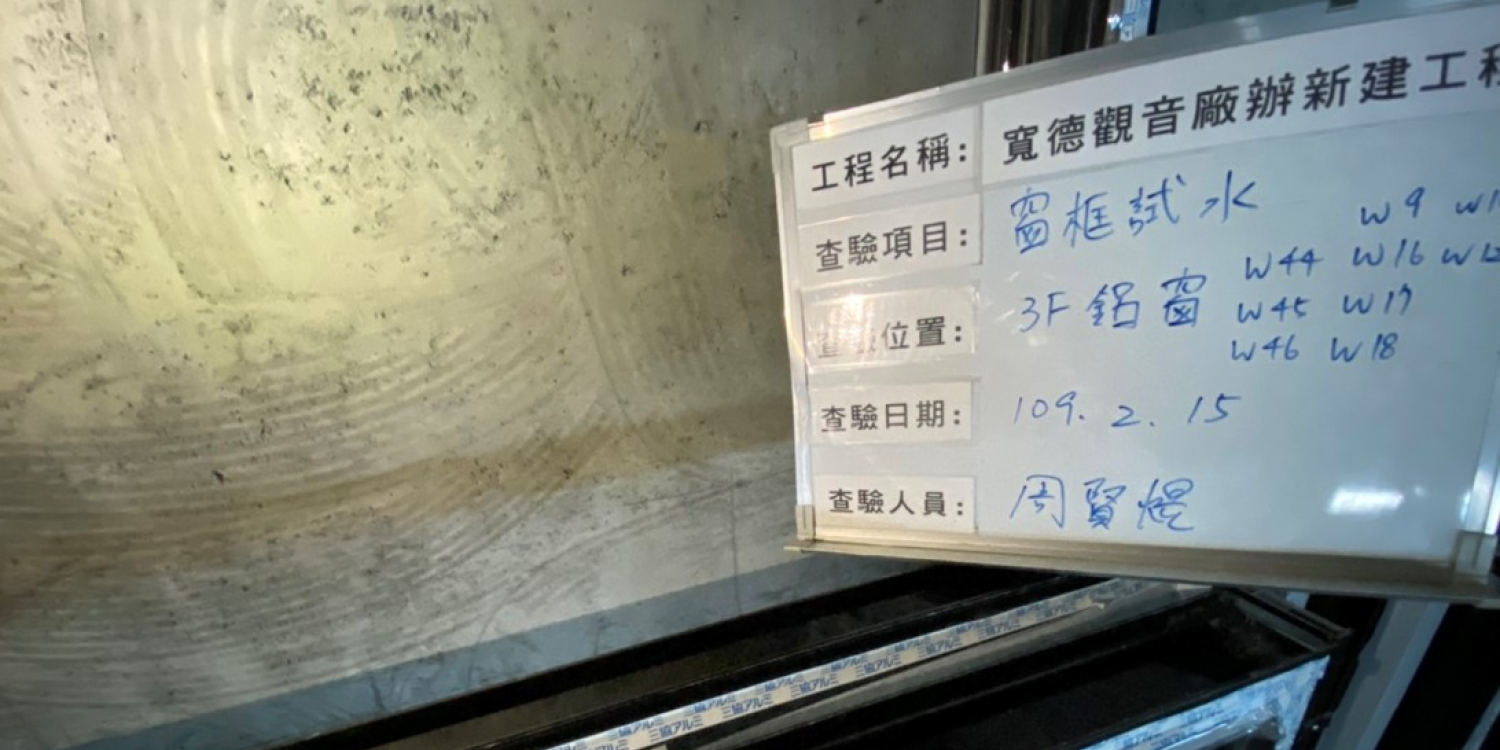 工程名稱: 寬德觀音廠辦新建工程
查驗項目: 窗框試水 W9
W44 W16 W12
位置: 3F 鋁窗 W45 W17
W46 W18
查驗日期: 109. 2. 15
查驗人員: 周賢焜
三協アルミ 三協アルミ 三協アルミ 三協アルミ